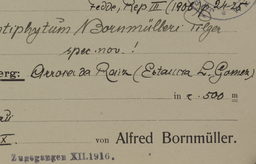 Fedde, Rep III (1906) p. 24-25
Antiphytum Bornmülleri Pilger
spec. nov.!
erg: Arroio da Raiz (Estancia L. Gomez)
in c. 500 m
X. von Alfred Bornmüller.
Zugegangen XII. 1916.